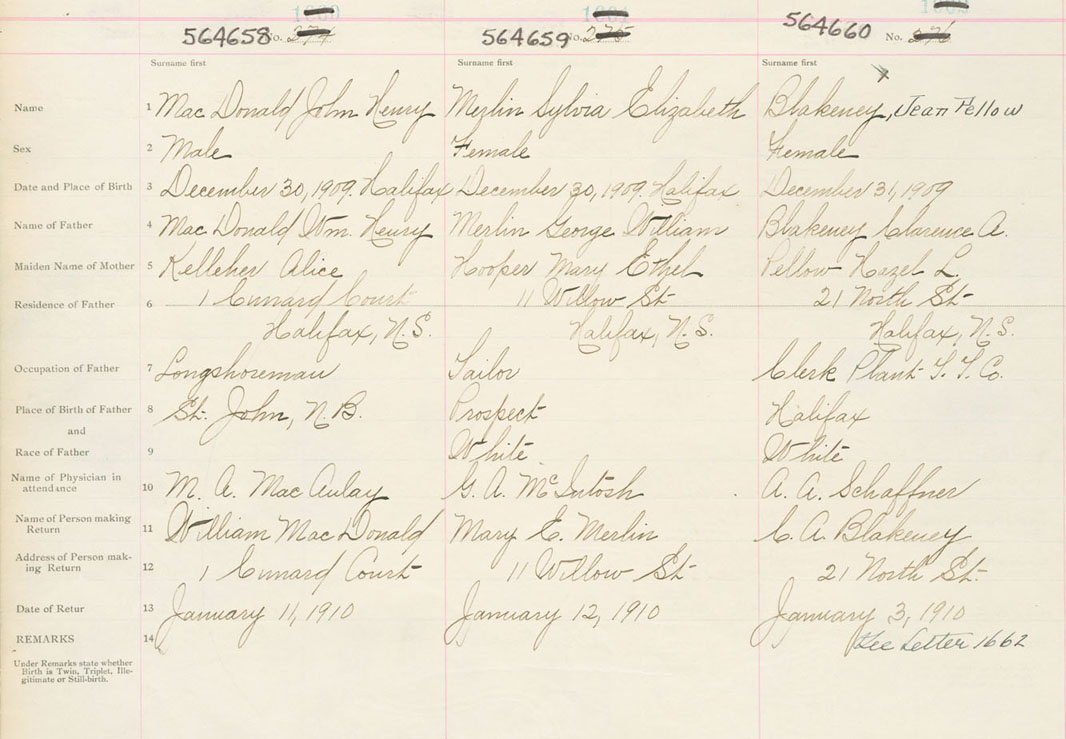 564658 No. 274
564659 No. 275
564660 No. 276
Surname first Surname first Surname first
Name 1 Mac Donald John Henry Merlin Sylvia Elizabeth Blakeney, Jean Pellow
Sex 2 Male Female Female
Date and Place of Birth 3 December 30, 1909. Halifax December 30, 1909. Halifax December 31, 1909
Name of Father 4 Mac Donald Wm. Henry Merlin George William Blakeney Clarence A.
Maiden Name of Mother 5 Kelleher Alice Hooper Mary Ethel Pellow Hazel L.
Residence of Father 6 1 Cunard Court 11 Willow St. 21 North St.
Halifax, N.S. Halifax, N.S. Halifax, N.S.
Occupation of Father 7 Longshoreman Clerk Plant Co.
Place of Birth of Father 8 St. John, N.B. Prospect Halifax
and
Race of Father 9 White White
Name of Physician in
attendance 10 M. A. Mac Aulay G. A. McIntosh A. A. Schaffner
Name of Person making
Return 11 William Mac Donald Mary E. Merlin C. A. Blakeney
Address of Person mak-
ing Return 12 1 Cunard Court 11 Willow St. 21 North St.
Date of Retur 13 January 11, 1910 January 12, 1910 January 3, 1910
REMARKS 14 See Letter 1662
Under Remarks state whether
Birth is Twin, Triplet, Ille-
gitimate or Still-birth.